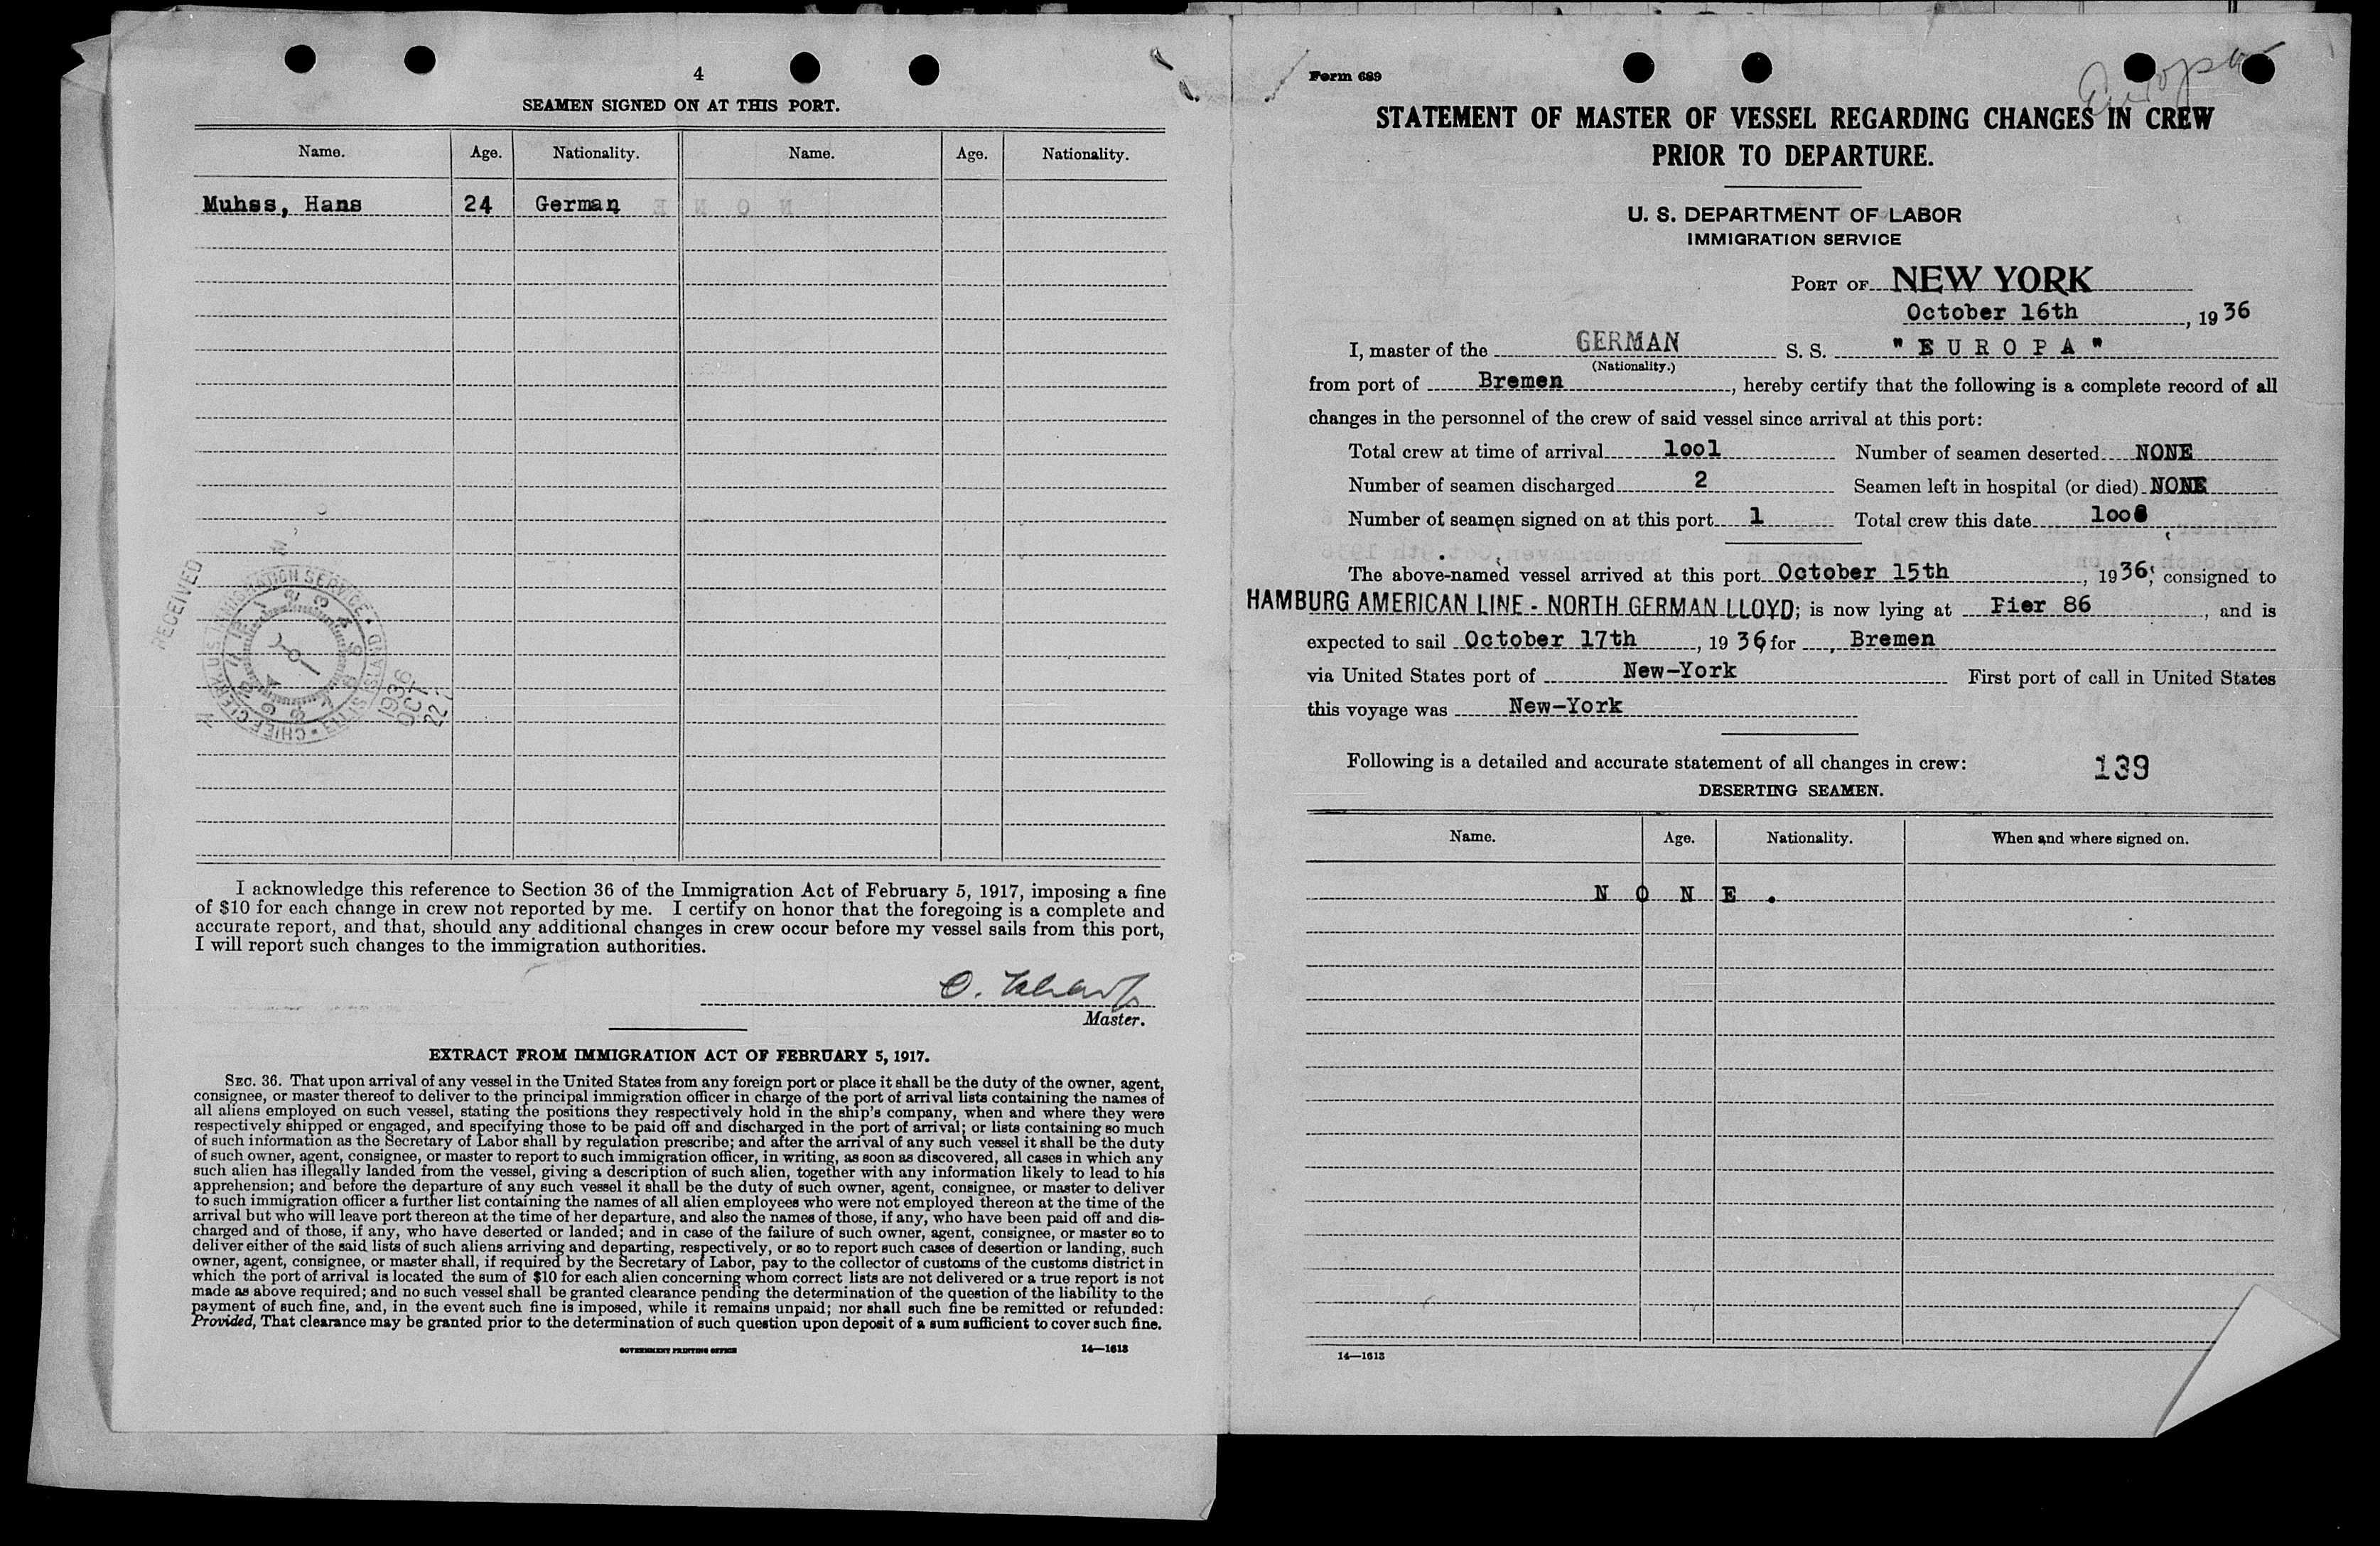 4
SEAMEN SIGNED ON AT THIS PORT.
Name. Age. Nationality. Name. Age. Nationality.
Muhss, Hans 24 German
RECEIVED
CHIEF CLERK U.S. IMMIGRATION SERVICE • ELLIS ISLAND
1936
OCT
22
I acknowledge this reference to Section 36 of the Immigration Act of February 5, 1917, imposing a fine
of $10 for each change in crew not reported by me. I certify on honor that the foregoing is a complete and
accurate report, and that, should any additional changes in crew occur before my vessel sails from this port,
I will report such changes to the immigration authorities.
Master.
EXTRACT FROM IMMIGRATION ACT OF FEBRUARY 5, 1917.
SEC. 36. That upon arrival of any vessel in the United States from any foreign port or place it shall be the duty of the owner, agent,
consignee, or master thereof to deliver to the principal immigration officer in charge of the port of arrival lists containing the names of
all aliens employed on such vessel, stating the positions they respectively hold in the ship's company, when and where they were
respectively shipped or engaged, and specifying those to be paid off and discharged in the port of arrival; or lists containing so much
of such information as the Secretary of Labor shall by regulation prescribe; and after the arrival of any such vessel it shall be the duty
of such owner, agent, consignee, or master to report to such immigration officer, in writing, as soon as discovered, all cases in which any
such alien has illegally landed from the vessel, giving a description of such alien, together with any information likely to lead to his
apprehension; and before the departure of any such vessel it shall be the duty of such owner, agent, consignee, or master to deliver
to such immigration officer a further list containing the names of all alien employees who were not employed thereon at the time of the
arrival but who will leave port thereon at the time of her departure, and also the names of those, if any, who have been paid off and dis-
charged and of those, if any, who have deserted or landed; and in case of the failure of such owner, agent, consignee, or master so to
deliver either of the said lists of such aliens arriving and departing, respectively, or so to report such cases of desertion or landing, such
owner, agent, consignee, or master shall, if required by the Secretary of Labor, pay to the collector of customs of the customs district in
which the port of arrival is located the sum of $10 for each alien concerning whom correct lists are not delivered or a true report is not
made as above required; and no such vessel shall be granted clearance pending the determination of the question of the liability to the
payment of such fine, and, in the event such fine is imposed, while it remains unpaid; nor shall such fine be remitted or refunded:
Provided, That clearance may be granted prior to the determination of such question upon deposit of a sum sufficient to cover such fine.
GOVERNMENT PRINTING OFFICE 14—1613
Form 689
Europa
STATEMENT OF MASTER OF VESSEL REGARDING CHANGES IN CREW
PRIOR TO DEPARTURE.
U. S. DEPARTMENT OF LABOR
IMMIGRATION SERVICE
PORT OF NEW YORK
October 16th, 1936
I, master of the GERMAN S. S. "EUROPA"
(Nationality.)
from port of Bremen, hereby certify that the following is a complete record of all
changes in the personnel of the crew of said vessel since arrival at this port:
Total crew at time of arrival 1ool Number of seamen deserted NONE
Number of seamen discharged 2 Seamen left in hospital (or died) NONE
Number of seamen signed on at this port 1 Total crew this date
The above-named vessel arrived at this port October 15th, 1936; consigned to
HAMBURG AMERICAN LINE - NORTH GERMAN LLOYD; is now lying at Pier 86, and is
expected to sail October 17th, 1936 for Bremen
via United States port of New-York First port of call in United States
this voyage was New-York
Following is a detailed and accurate statement of all changes in crew: 139
DESERTING SEAMEN.
Name. Age. Nationality. When and where signed on.
N O N E .
14—1613